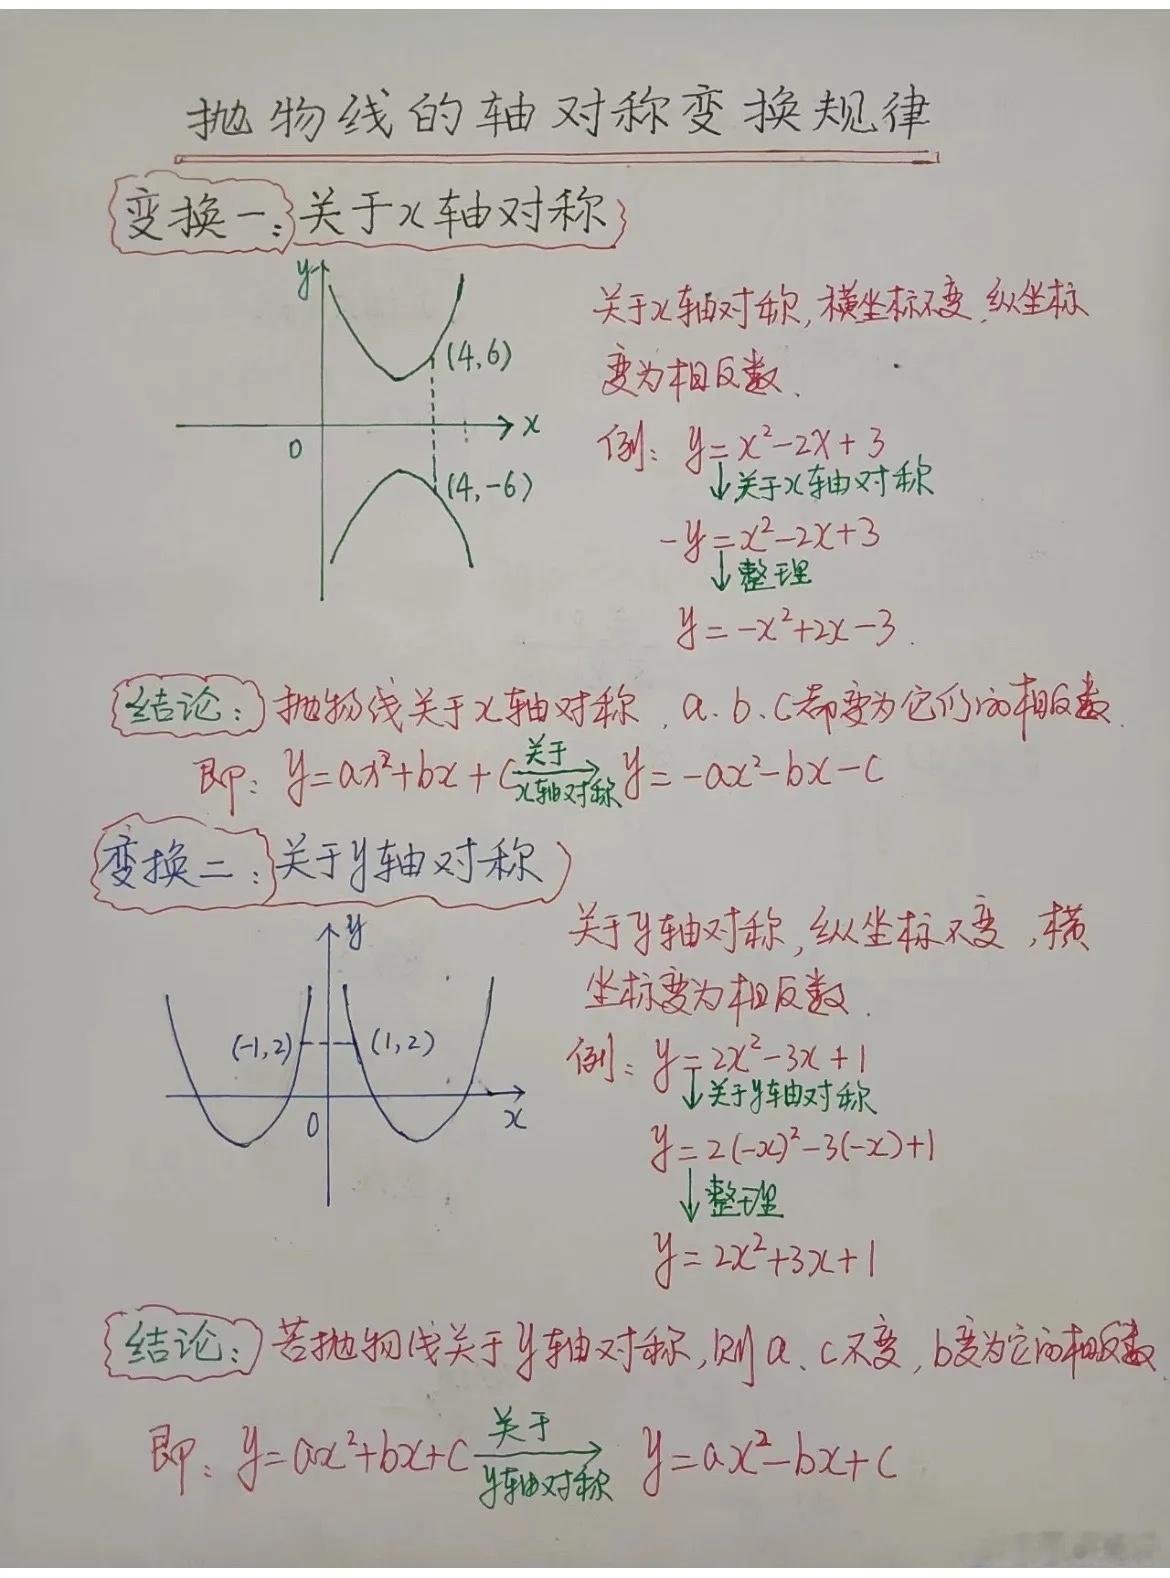 抛物线的轴对称变换规律
变换一:关于x轴对称
y
(4,6)
x
0
(4,-6)
关于x轴对称,横坐标不变,纵坐标
变为相反数.
例: y=x²-2x+3
↓关于x轴对称
-y=x²-2x+3
↓整理
y=-x²+2x-3.
结论:抛物线关于x轴对称,a.b.c都变为它们的相反数.
即: y=ax²+bx+c 关于x轴对称→ y=-ax²-bx-c
变换二:关于y轴对称
y
(-1,2)
(1,2)
0
x
关于y轴对称,纵坐标不变,横
坐标变为相反数.
例: y=2x²-3x+1
↓关于y轴对称
y=2(-x)²-3(-x)+1
↓整理
y=2x²+3x+1
结论:若抛物线关于y轴对称,则a、c不变,b变为它的相反数.
即: y=ax²+bx+c 关于y轴对称→ y=ax²-bx+c